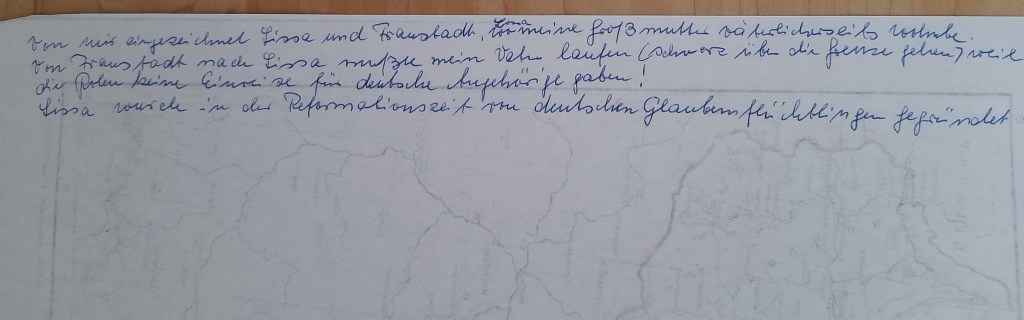 Von mir eingezeichnet Lissa und Fraustadt, Lissa wo meine Großmutter väterlicherseits wohnte.
Von Fraustadt nach Lissa mußte mein Vater laufen (schwarz über die Grenze gehen) weil
die Polen keine Einreise für deutsche Angehörige gaben!
Lissa wurde in der Reformationszeit von deutschen Glaubensflüchtlingen gegründet